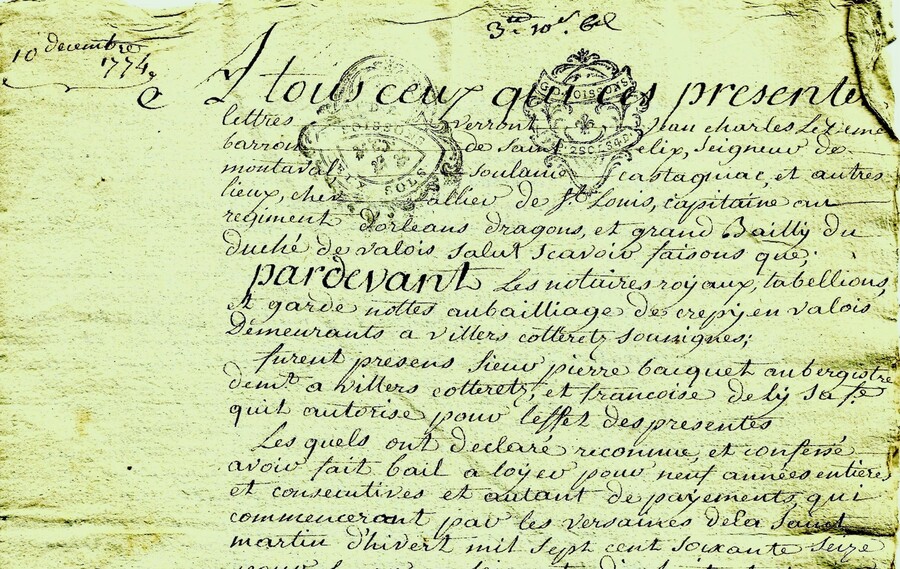 10 decembre
1774
3me 10es 6d
A tous ceux qui ces presente
lettres verront Jean charles Lezenne
barron de saint felix, seigneur de
montaval soulano castagnac, et autres
lieux, chevallier de St Louis, capitaine au
regiment Dorleans dragons, et grand Bailly du
duché de valois salut scavoir faisons que;
pardevant Les notaires royaux, tabellions,
et garde nottes aubailliage de crepy en valois
Demeurants a villers cotteretz sousignes;
furent presens sieur pierre bacquet aubergistre
demt. a villers cotteretz, et francoise de lj sa fe
quil autorise pour leffet des presentes
Les quels ont declaré reconnue, et confessé
avoir fait bail a loyer pour neuf années entieres
et consecutives et autant de payements, qui
commenceront par les versaines dela saint
martin d'hivert mil sept cent soixante seize